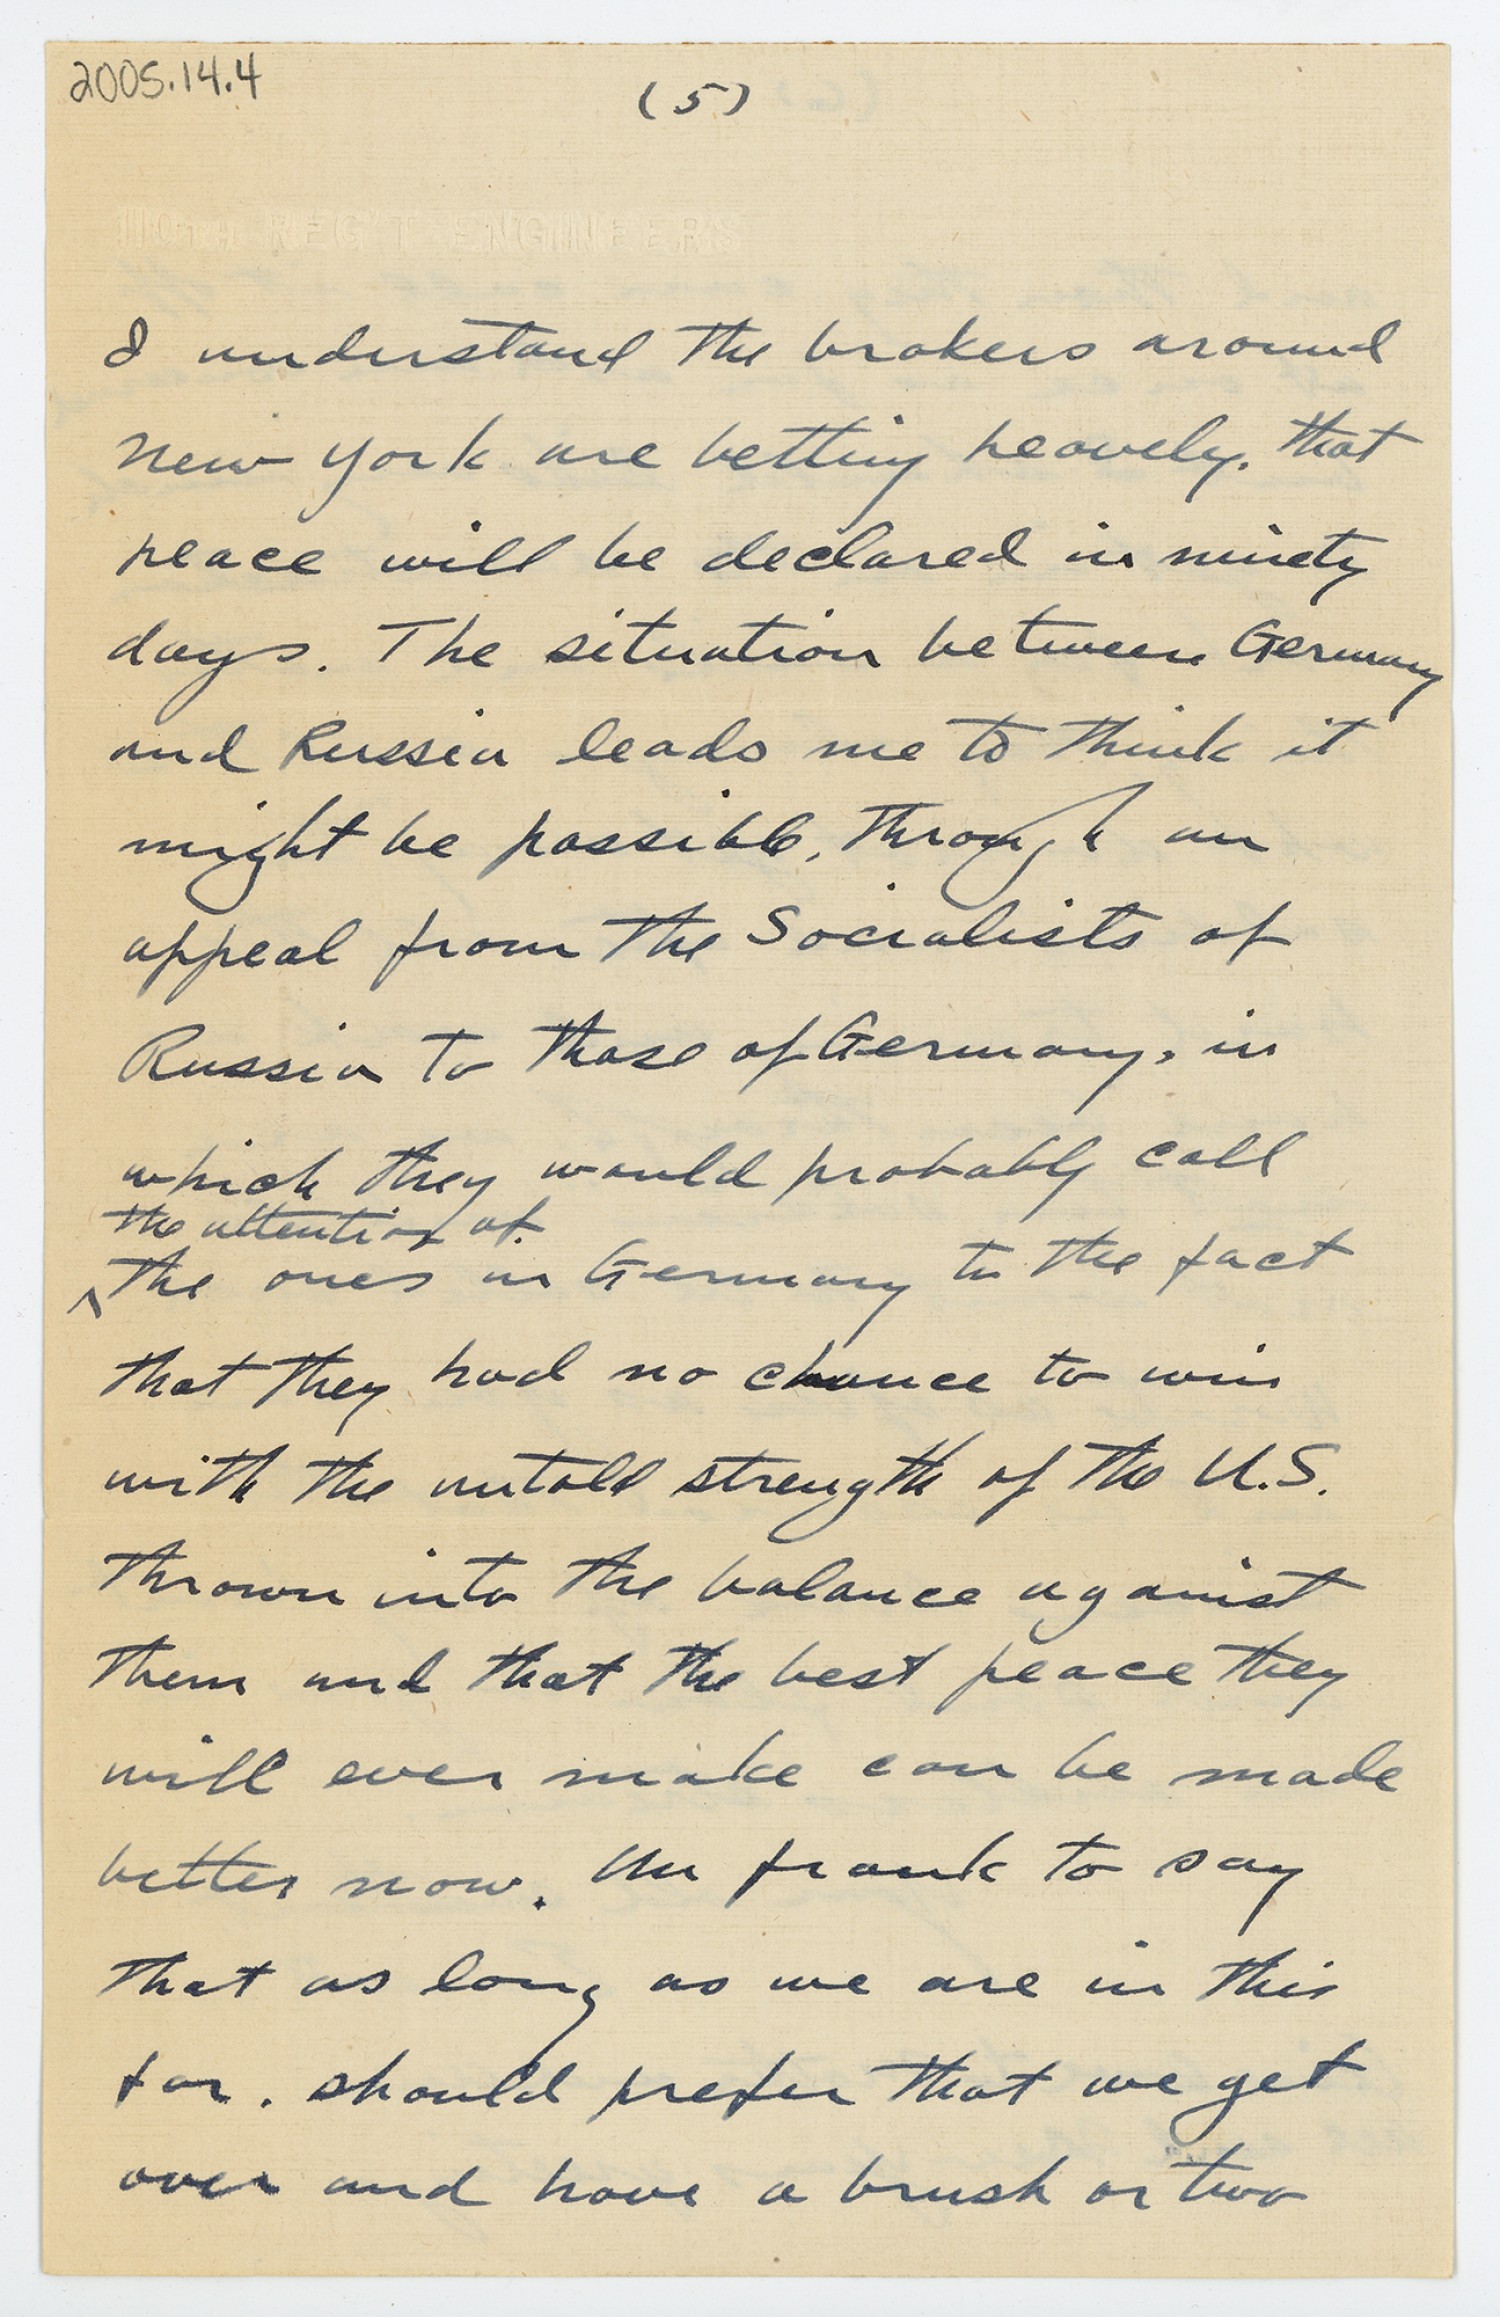 2005.14.4
(5)
110TH REG'T ENGINEERS
I understand the brokers around
New York are betting heavely, that
peace will be declared in ninety
days. The situation between Germany
and Russia leads me to think it
might be possible, through an
appeal from the Socialists of
Russia to those of Germany, in
which they would probably call
the attention of
^ the ones in Germany to the fact
that they had no chance to win
with the untold strength of the U.S.
thrown into the balance against
them and that the best peace they
will ever make can be made
better now. Am frank to say
that as long as we are in this
far, should prefer that we get
over and have a brush or two